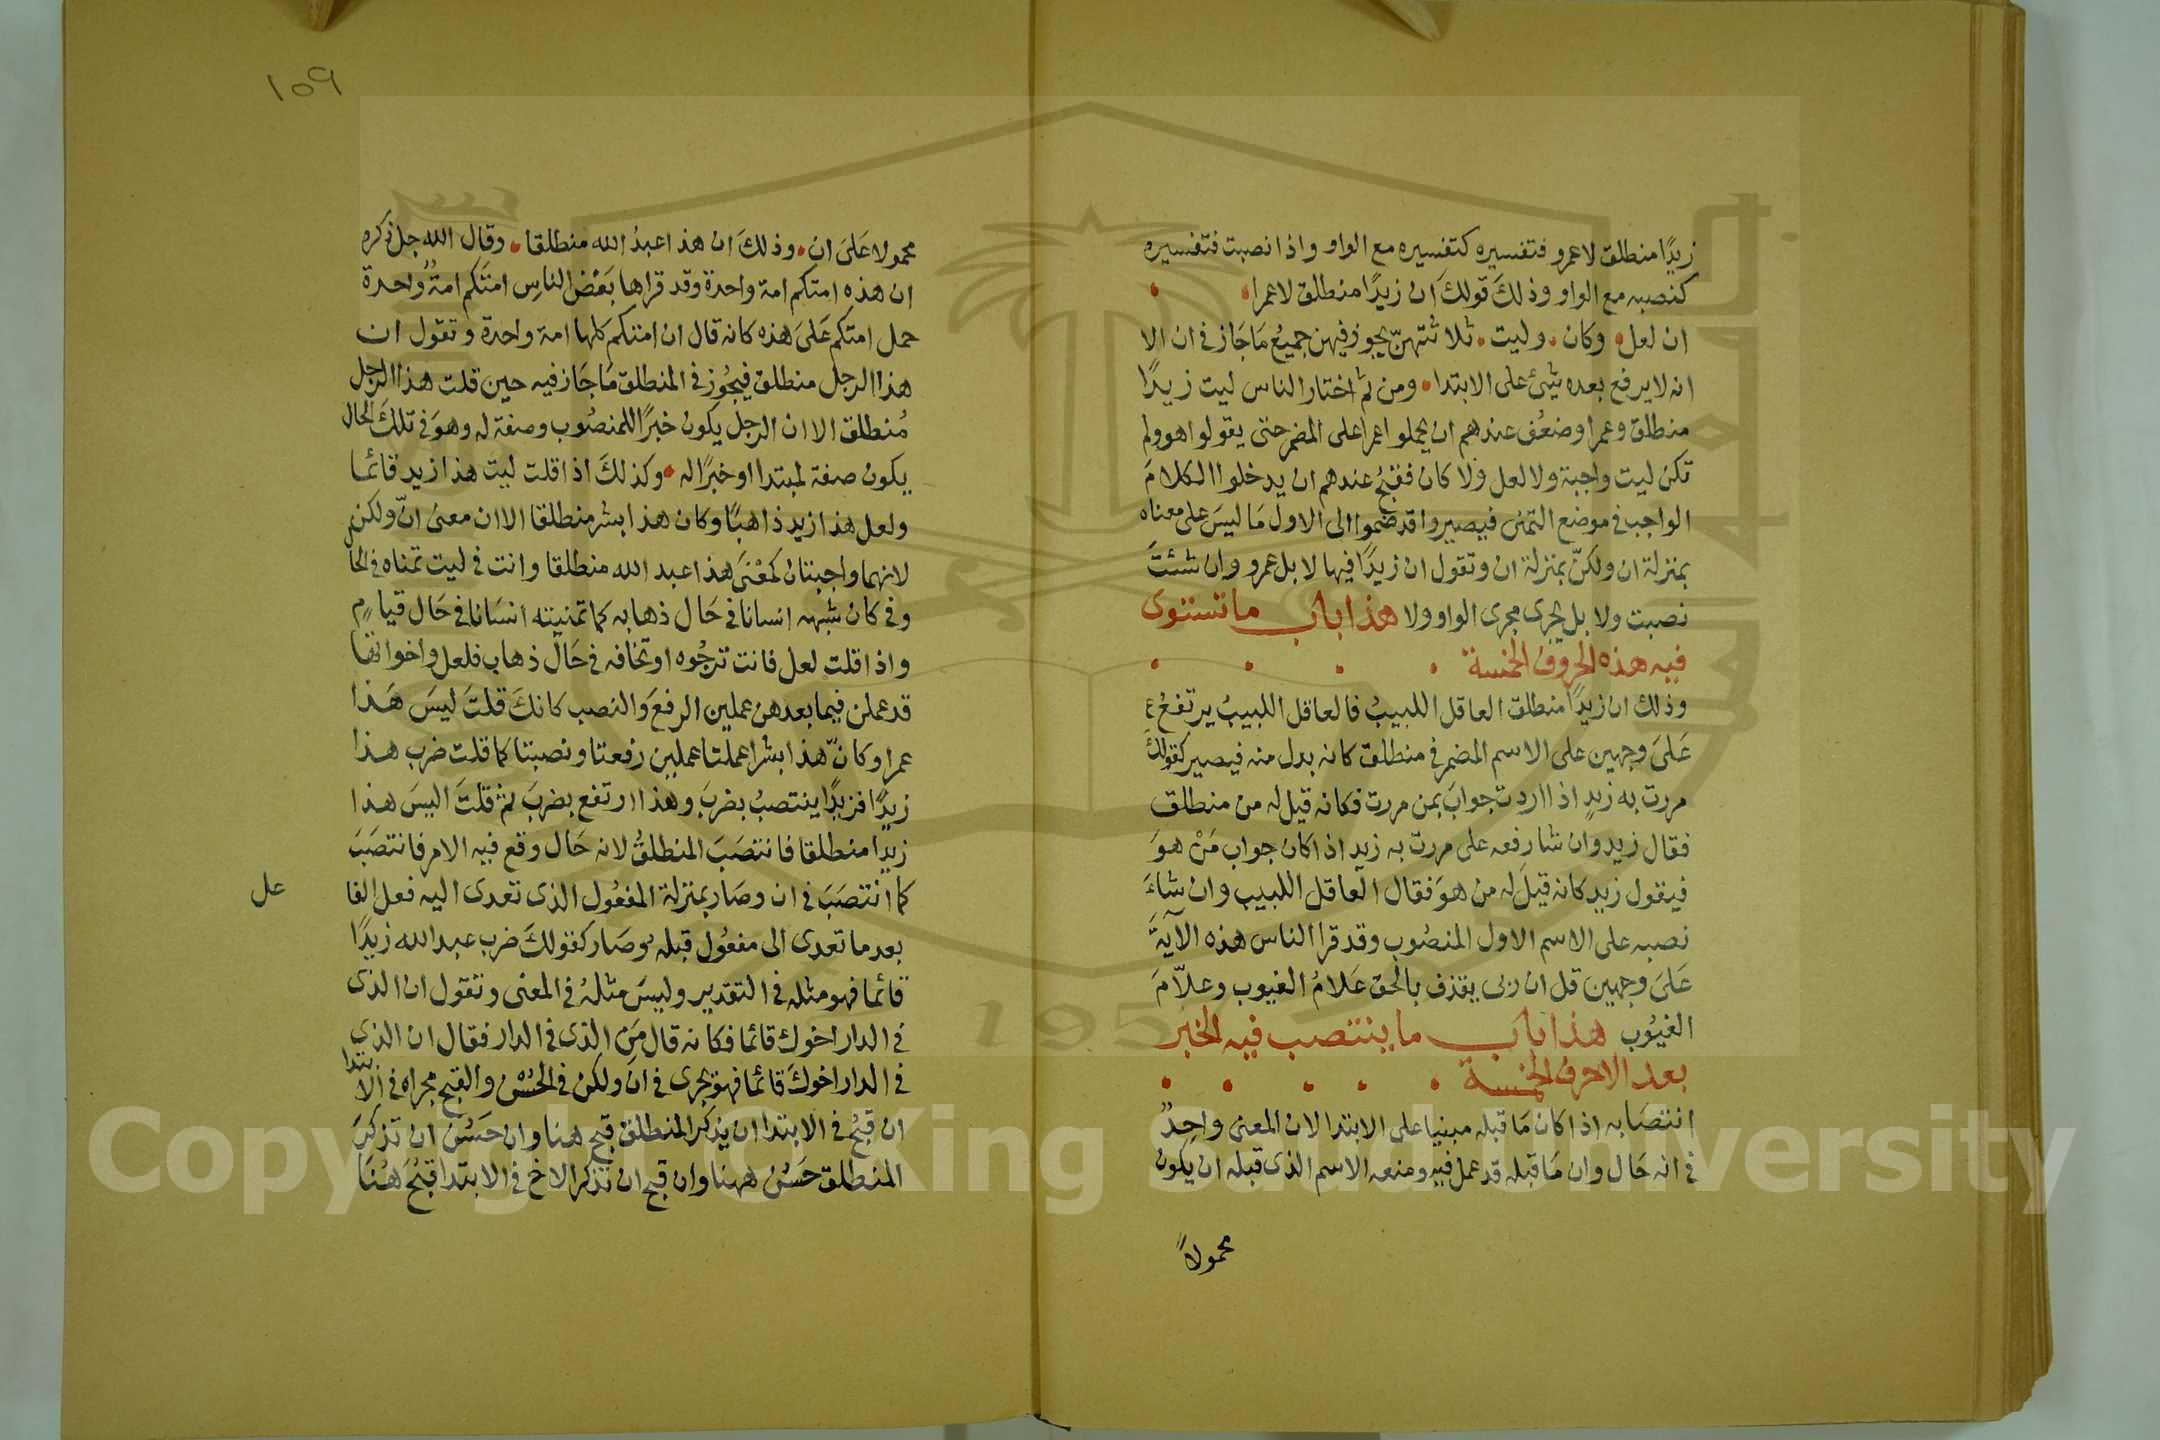 زيدًا منطلق لا عمرو فتفسيره كتفسيره مع الواو واذا نصبت فتفسيره
كنصبه مع الواو وذلكَ قولكَ ان زيدًا منطلق لا عمرا
ان لعل وكان وليت ثلاثتهنّ يجوز فيهن جميعُ مَا جَاز في ان الا
انه لا يرفع بعده شئ على الابتدا ومن ثم اختار الناس ليت زيدًا
منطلق وعمرا وضعُف عندهم ان يحملو اعمرا على المضمر حتى يقولوا هو ولم
تكن ليت واجبة ولا لعل ولا كان فقبحُ عندهم ان يدخلوا الكلامَ
الواجب في موضع التمنى فيصيروا قد ضموا الى الاول مَا ليسَ على معناه
بمنزلة ان ولكنّ بمنزلة ان وتقول ان زيدًا فيها لا بل عمرو وان شئتَ
نصبت ولا بل يجرى مجرى الواو ولا هذا باب ما تستوى
فيه هذه الحروف الخمسة
وذلك ان زيدًا منطلق العاقل اللبيبُ فالعاقل اللبيبُ يرتفعُ ع
عَلىَ وجهين على الاسم المضمر في منطلق كانه بدل منه فيصير كقولكَ
مررت به زيدٍ اذا اردت جوابَ بمن مررت فكانه قيل له من منطلق
فقال زيد وان شا رفعه على مررت به زيد اذا كان جواب مَنْ هوَ
فيقول زيد كانه قيلَ له من هوَ فقال العاقل اللبيب وان شاءَ
نصبه على الاسم الاول المنصُوب وقد قرا الناس هذه الآيةَ
عَلىَ وجهين قل ان ربى يقذف بالحق عَلامُ الغيوب وعلاّمَ
الغيُوب هذا باب ما ينتصب فيه الخبر
بعد الاحرف الخمسة
انتصَابه اذا كان مَا قبله مبنيا على الابتدا لان المعنى واحِدٌ
في انه حَال وان مَا قبله قد عمل فيه ومنعه الاسم الذى قبله ان يكون
محمولاً
١٥٩
محمولا عَلىَ ان وذلكَ ان هذا عبدُ الله منطلقا وقال الله جل ذكره
ان هذه امتكم امة واحدة وقد قراها بَعْض الناسِ امتَكم امةٌ واحدة
حمل امتكم عَلىَ هذه كانه قال ان امتكم كلها امة واحدة وتقول ان
هذا الرجل منطلق فيجُوز في المنطلق مَا جَاز فيه حين قلت هذا الرجل
مُنطلق الا ان الرجل يكون خبرًا للمنصُوب وصفة له وهوَ في تلكَ الحال
يكون صفة لمبتدا او خبرًا له وكذلكَ اذا قلت ليت هذا زيد قائما
ولعل هذا زيد ذاهبًا وكان هذا بشر منطلقا الا ان معنى انّ ولكن
لانهما واجبتان كمعْنىَ هذا عبد الله منطلقا وانت في ليت تمناه في الحال
وفي كان تشبهه انسانا في حَال ذهابه كما تمنيته انسَانا في حَال قيامٍ
واذا قلت لعل فانت ترجُوه او تخافه في حَال ذهاب فلعل واخواتها
قد عملن فيما بعدهن عملين الرفعَ والنصب كانكَ قلتَ ليسَ هَذا
عمرا وكانّ هذا بشرا عملتا عملين رفعتا ونصبتا كما قلت ضرب هذا
زيدًا فزيدًا ينتصبُ بضربَ وهذا ارتفع بضربَ ثم قلتَ اليسَ هذا
زيدا منطلقا فانتصَبَ المنطلقُ لانه حَال وقع فيه الامر فانتصَبَ
كما انتصَبَ في ان وصَار بمنزلة المفعُول الذى تعدى اليه فعل الفا
عل
بعد ما تعدى الى مفعُول قبله وصَار كقولكَ ضرب عبد الله زيدًا
قائما فهو مثله في التقدير وليسَ مثلهُ في المعنى وتقول ان الذى
في الدار اخوك قائما فكانه قال مَن الذى في الدار فقال ان الذى
في الدار اخوكَ قائما فهوَ يجرى في انَ ولكن في الحُسْن والقبح مجراه في الابتدا
ان قبُح في الابتدا ان يذكر المنطلق قبح هنا وان حَسُن ان تذكرَ
المنطلق حَسُن ههنا وان قبح ان تذكر الاخ في الابتدا قبُحَ هُنَا
Copyright © King Saud University
1957